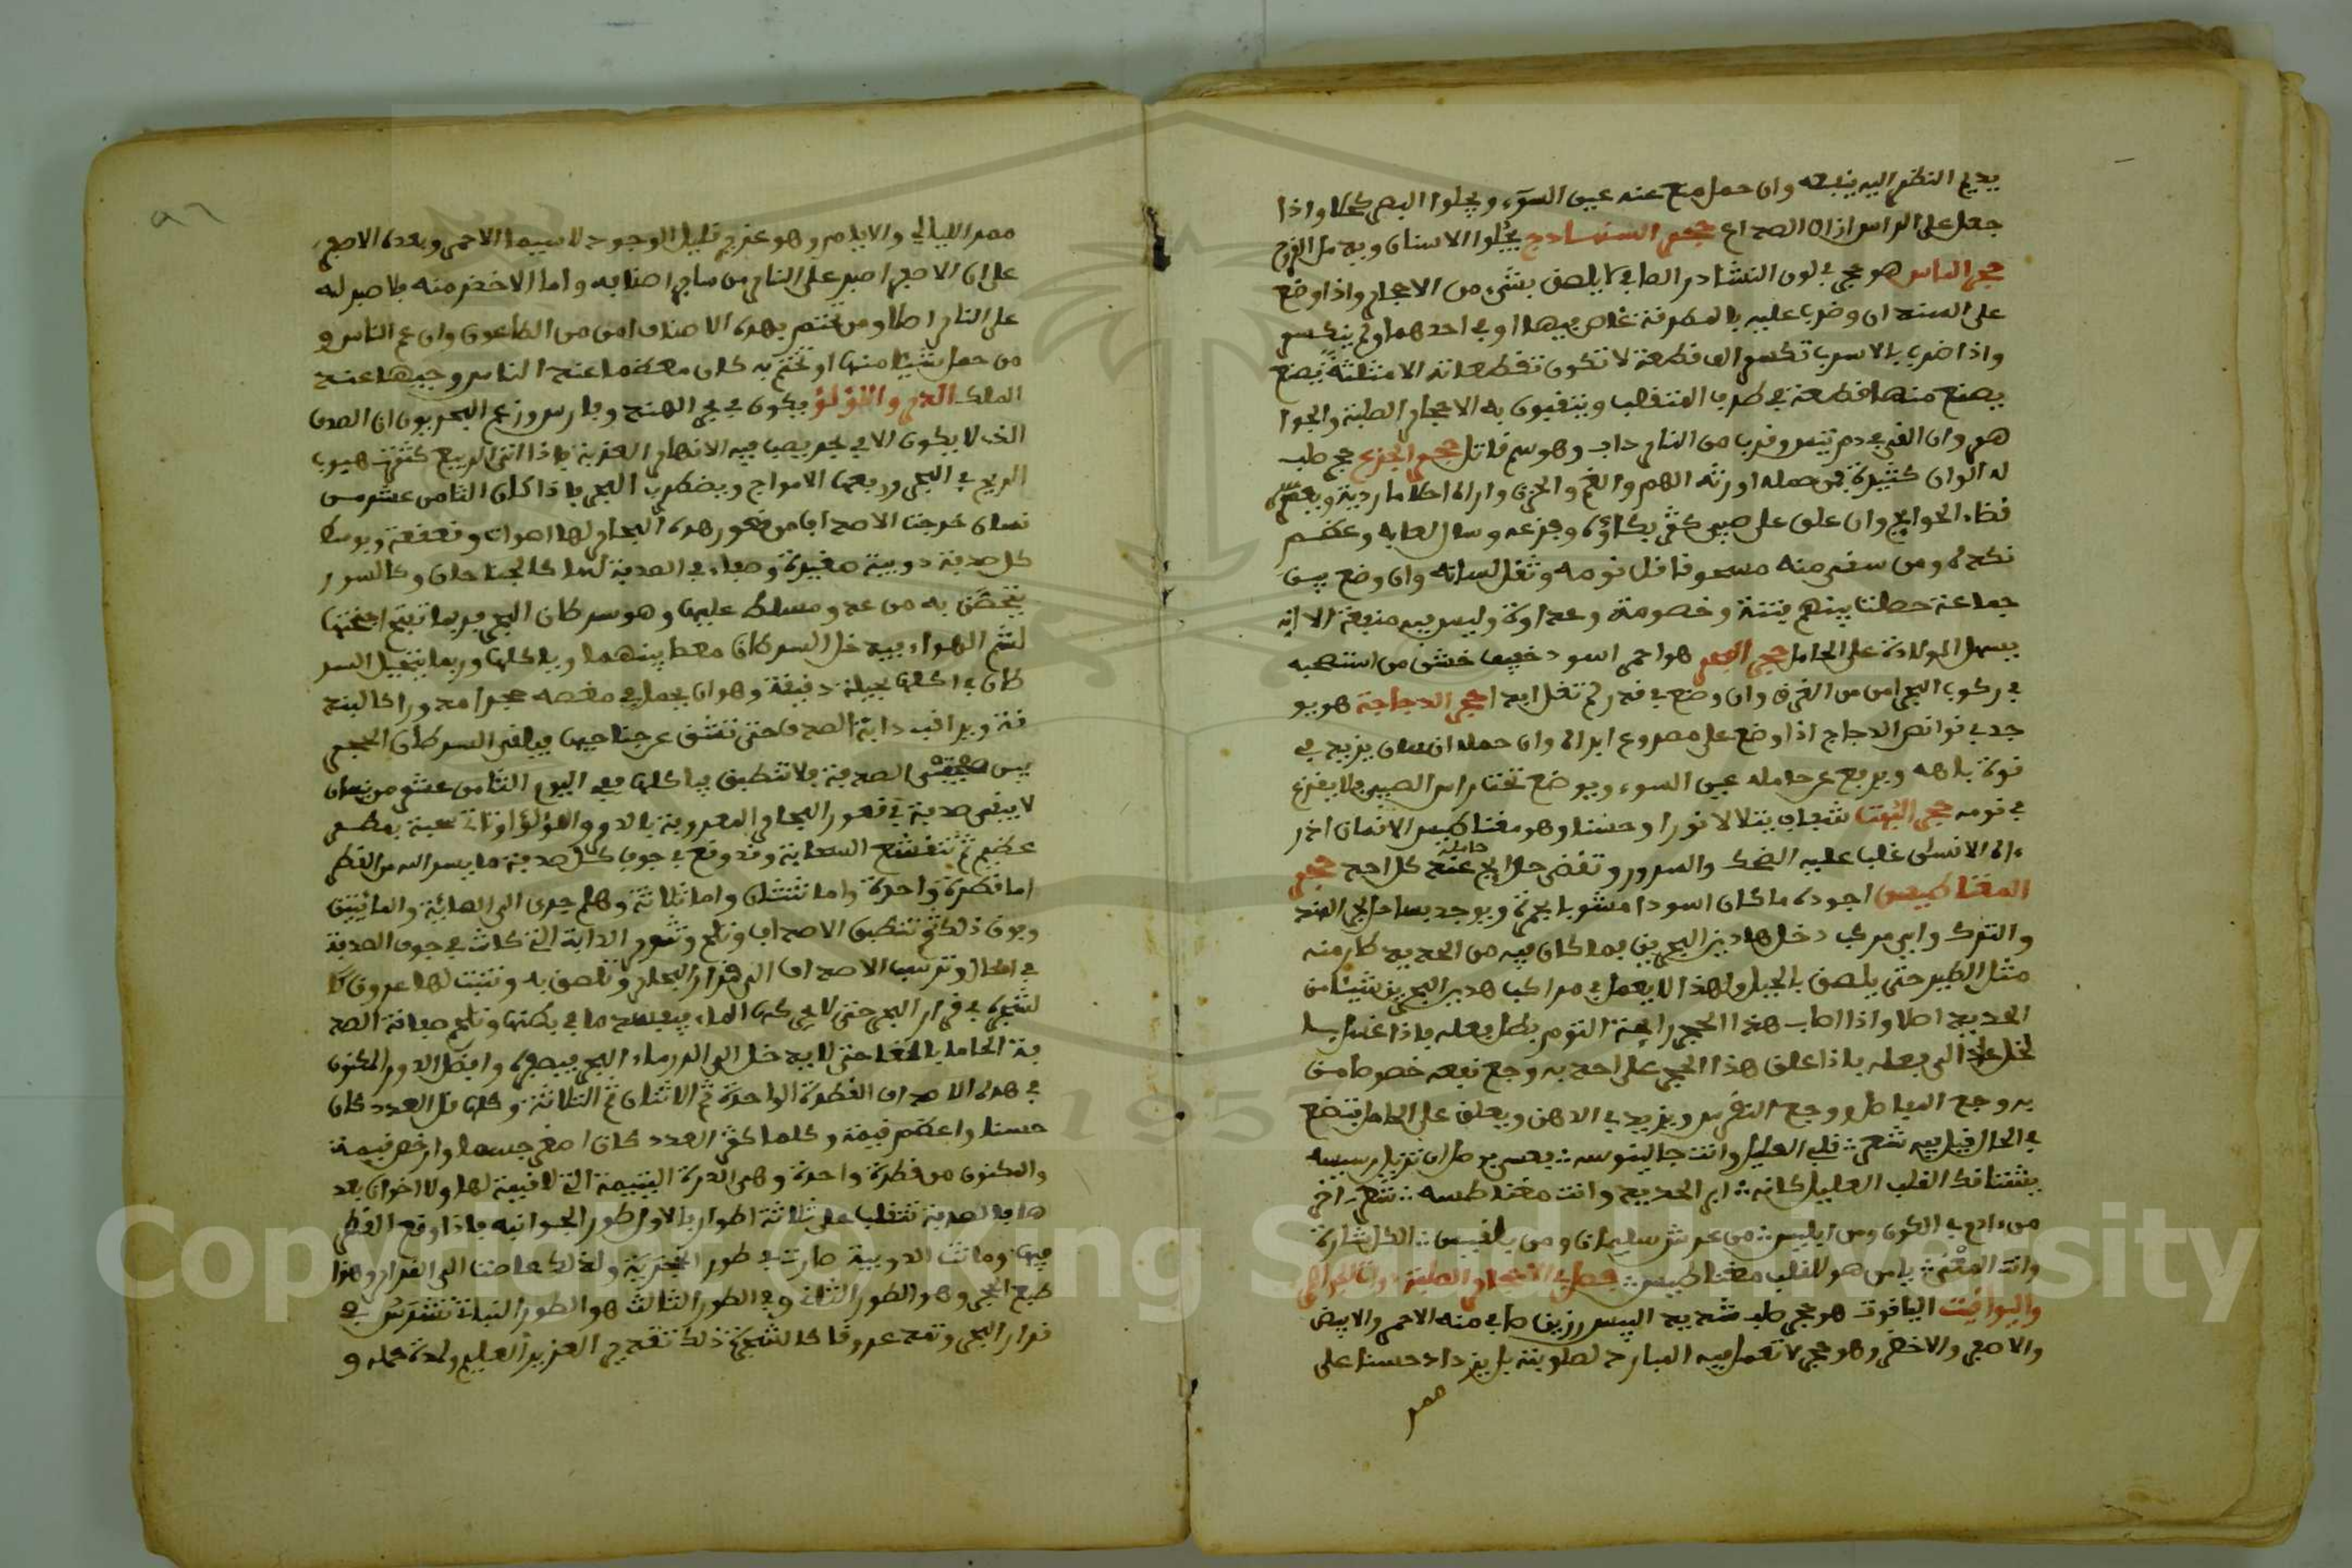 يديم النظر اليه ينفعه وان حمل منع عنه عين السوء ويجلوا البصر كحلا واذا
جعل على الراس ازال الصداع حجر السنبادج يجلوا الاسنان ويدمل القروح
حجر الماس هو حجر في لون النشادر الصافي لا يلصق بشيء من الاحجار واذا وضع
على السندان وضرب عليه بالمطرقة غاص فيها او في احدهما ولم ينكسر
واذا ضرب بالاسرب تكسر الف قطعة لا تكون تقطعاته الا مثلثة يصنع
يصنع منها قطعة في طرف المثقب ويثقبون به الاحجار الصلبة والجوا
هر وان القي في دم تيس وقرب من النار ذاب وهو سم قاتل حجر الجزع حجر صلب
له الوان كثيرة فمن حمله اورثه الهم والغم والحزن واراه احلاما ردية ويعسر
قضاء الحوايج وان علق على صبي كثر بكاؤه وفزعه وسال لعابه وعظم
نكده ومن سقي منه مسحوقا قل نومه وثقل لسانه وان وضع بين
جماعة حصلت بينهم فتنة وخصومة وعداوة وليس فيه منفعة الا انه
يسهل الولادة على الحامل حجر البحر هو احمر اسود خفيف خشن من استصحبه
في ركوب البحر امن من الغرق وان وضع في قدر لم تغل ابدا حجر الدجاجة هو يو
جد في قوانص الدجاج اذا وضع على مصروع ابراه وان حمله انسان يزيد في
قوة باهه ويرفع عن حامله عين السوء ويوضع تحت راس الصبي فلا يفزع
في نومه حجر البهت شفاف يتلالا نورا وحسنا وهو مغناطيس الانسان اذا ر
ءاه الانسان غلب عليه الضحك والسرور وتقضى حوايج حامله عند كل احد حجر
المغناطيس اجوده ما كان اسودا مشوبا بحمرة ويوجد بساحل بحر الهند
والترك واي مركب دخل هاذين البحرين فما كان فيه من الحديد طار منه
مثل الطير حتى يلصق بالجبل ولهذا لا يعمل في مراكب هذين البحرين شيئا من
الحديد اصلا واذا اصاب هذا الحجر رايحة الثوم بطل فعله فاذا غسل بـ
لخل عاد الى فعله فاذا علق هذا الحجر على احد به وجع نفعه خصوصا من
به وجع المفاصل ووجع النقرس ويزيد في الذهن ويعلق على الحامل فتضع
في الحال قيل فيه شعر قلبي العليل وانت جالينوسه
يشتاقك القلب العليل كانه ابر الحديد وانت مغناطيسه شعر اخر
من ءادم في الكون ومن ابليس من عرش سليمان ومن بلقيس الكل اشارة
وانت المعنى يا من هو للقلب مغناطيس فصل في الاحجار الصلبة ذوات الجواهر
واليواقيت الياقوت هو حجر صلب شديد اليبس رزين صافي منه الاحمر والابيض
والاصفر والاخضر وهو حجر لا تعمل فيه المبارد لصلوبته بل يزداد حسنا على
ممر
ممر الليالي والايام وهو عزيز قليل الوجود لا سيما الاحمر وبعده الاصفر
على ان الاصفر اصبر على النار من ساير اصنافه واما الاخضر منه فلا صبر له
على النار اصلا ومن تختم بهذه الاصناف امن من الطاعون وان عم الناس و
من حمل شيئا منها او تختم به كان معظما عند الناس وجيها عند
الملك الدر واللؤلؤ يكون في بحر الهند وفارس وزعم البحريون ان الصدف
الذي لا يكون الا في بحر يصب فيه الانهار العذبة فاذا اتى الربيع كثر هبوب
الريح في البحر وارتفعت الامواج ويضطرب البحر فاذا كان الثامن عشر من
نيسان خرجت الاصداف من قعور هذه البحار ولها اصوات وقعقعة وبوسط
كل صدفة دويبة صغيرة وصفاء في الصدفة لها كالجناحان وكالسور
يتحصن به من عدو مسلط عليها وهو سرطان البحر فربما تفتح اجنحتها
لشم الهواء فيدخل السرطان معطا بينهما وياكلها وربما يتحيل السر
طان في اكلها بحيلة دقيقة وهو ان يحمل في مقصه حجرا مدورا كالبند
قة ويراقب دابة الصدف حتى تنشق عن جناحيها فيلقي السرطان الحجر
بين صفحتي الصدفة فلا تنطبق فياكلها ففي اليوم الثامن عشر من نيسان
لا يبقى صدفة في قعور البحار المعروفة بالدر واللؤلؤ
عظيم ثم تنقشع السحابة وقد وقع في جوف كل صدفة ما يسر الله من القطر
اما قطرة واحدة واما ثنتان واما ثلاثة وهلم جرى الى المائة والمائتين
وفوق ذلك ثم تنطبق الاصداف وتلحم وتموت الدابة التي كانت في جوف الصدفة
في الحال وترسب الاصداف الى قرار البحار وتلصق به وتنبت لها عروق كا
لشجرة في قرار البحر حتى لا يحركها الماء فيفسد ما في بطنها وتلحم صفاقة الصد
فة الحاما بالغا حتى لا يدخل الى الدر ماء البحر فيصفره وافضل الدر المكنون
في هذه الاصداف القطرة الواحدة ثم الاثنان ثم الثلاثة وكلما قل العدد كان
حسنا واعظم قيمة وكلما كثر العدد كان اصغر جسما وارخص قيمة
والمكنون من قطرة واحدة وهي الدرة اليتيمة التي لا قيمة لها ولا اخوان بعد
ها فالصدفة تنقلب على ثلاثة اطوار فالاول طور الحيوانية فاذا وقع القطر
فيها وماتت الدويبة صارت في طور الحجرية ولذلك غاصت الى القرار وهذا
طبع الحجر وهو الطور الثاني وفي الطور الثالث هو الطور النباتي تشرش في
قرار البحر وتمد عروقا كالشجرة ذلك تقدير العزيز العليم ولمدة حمله و